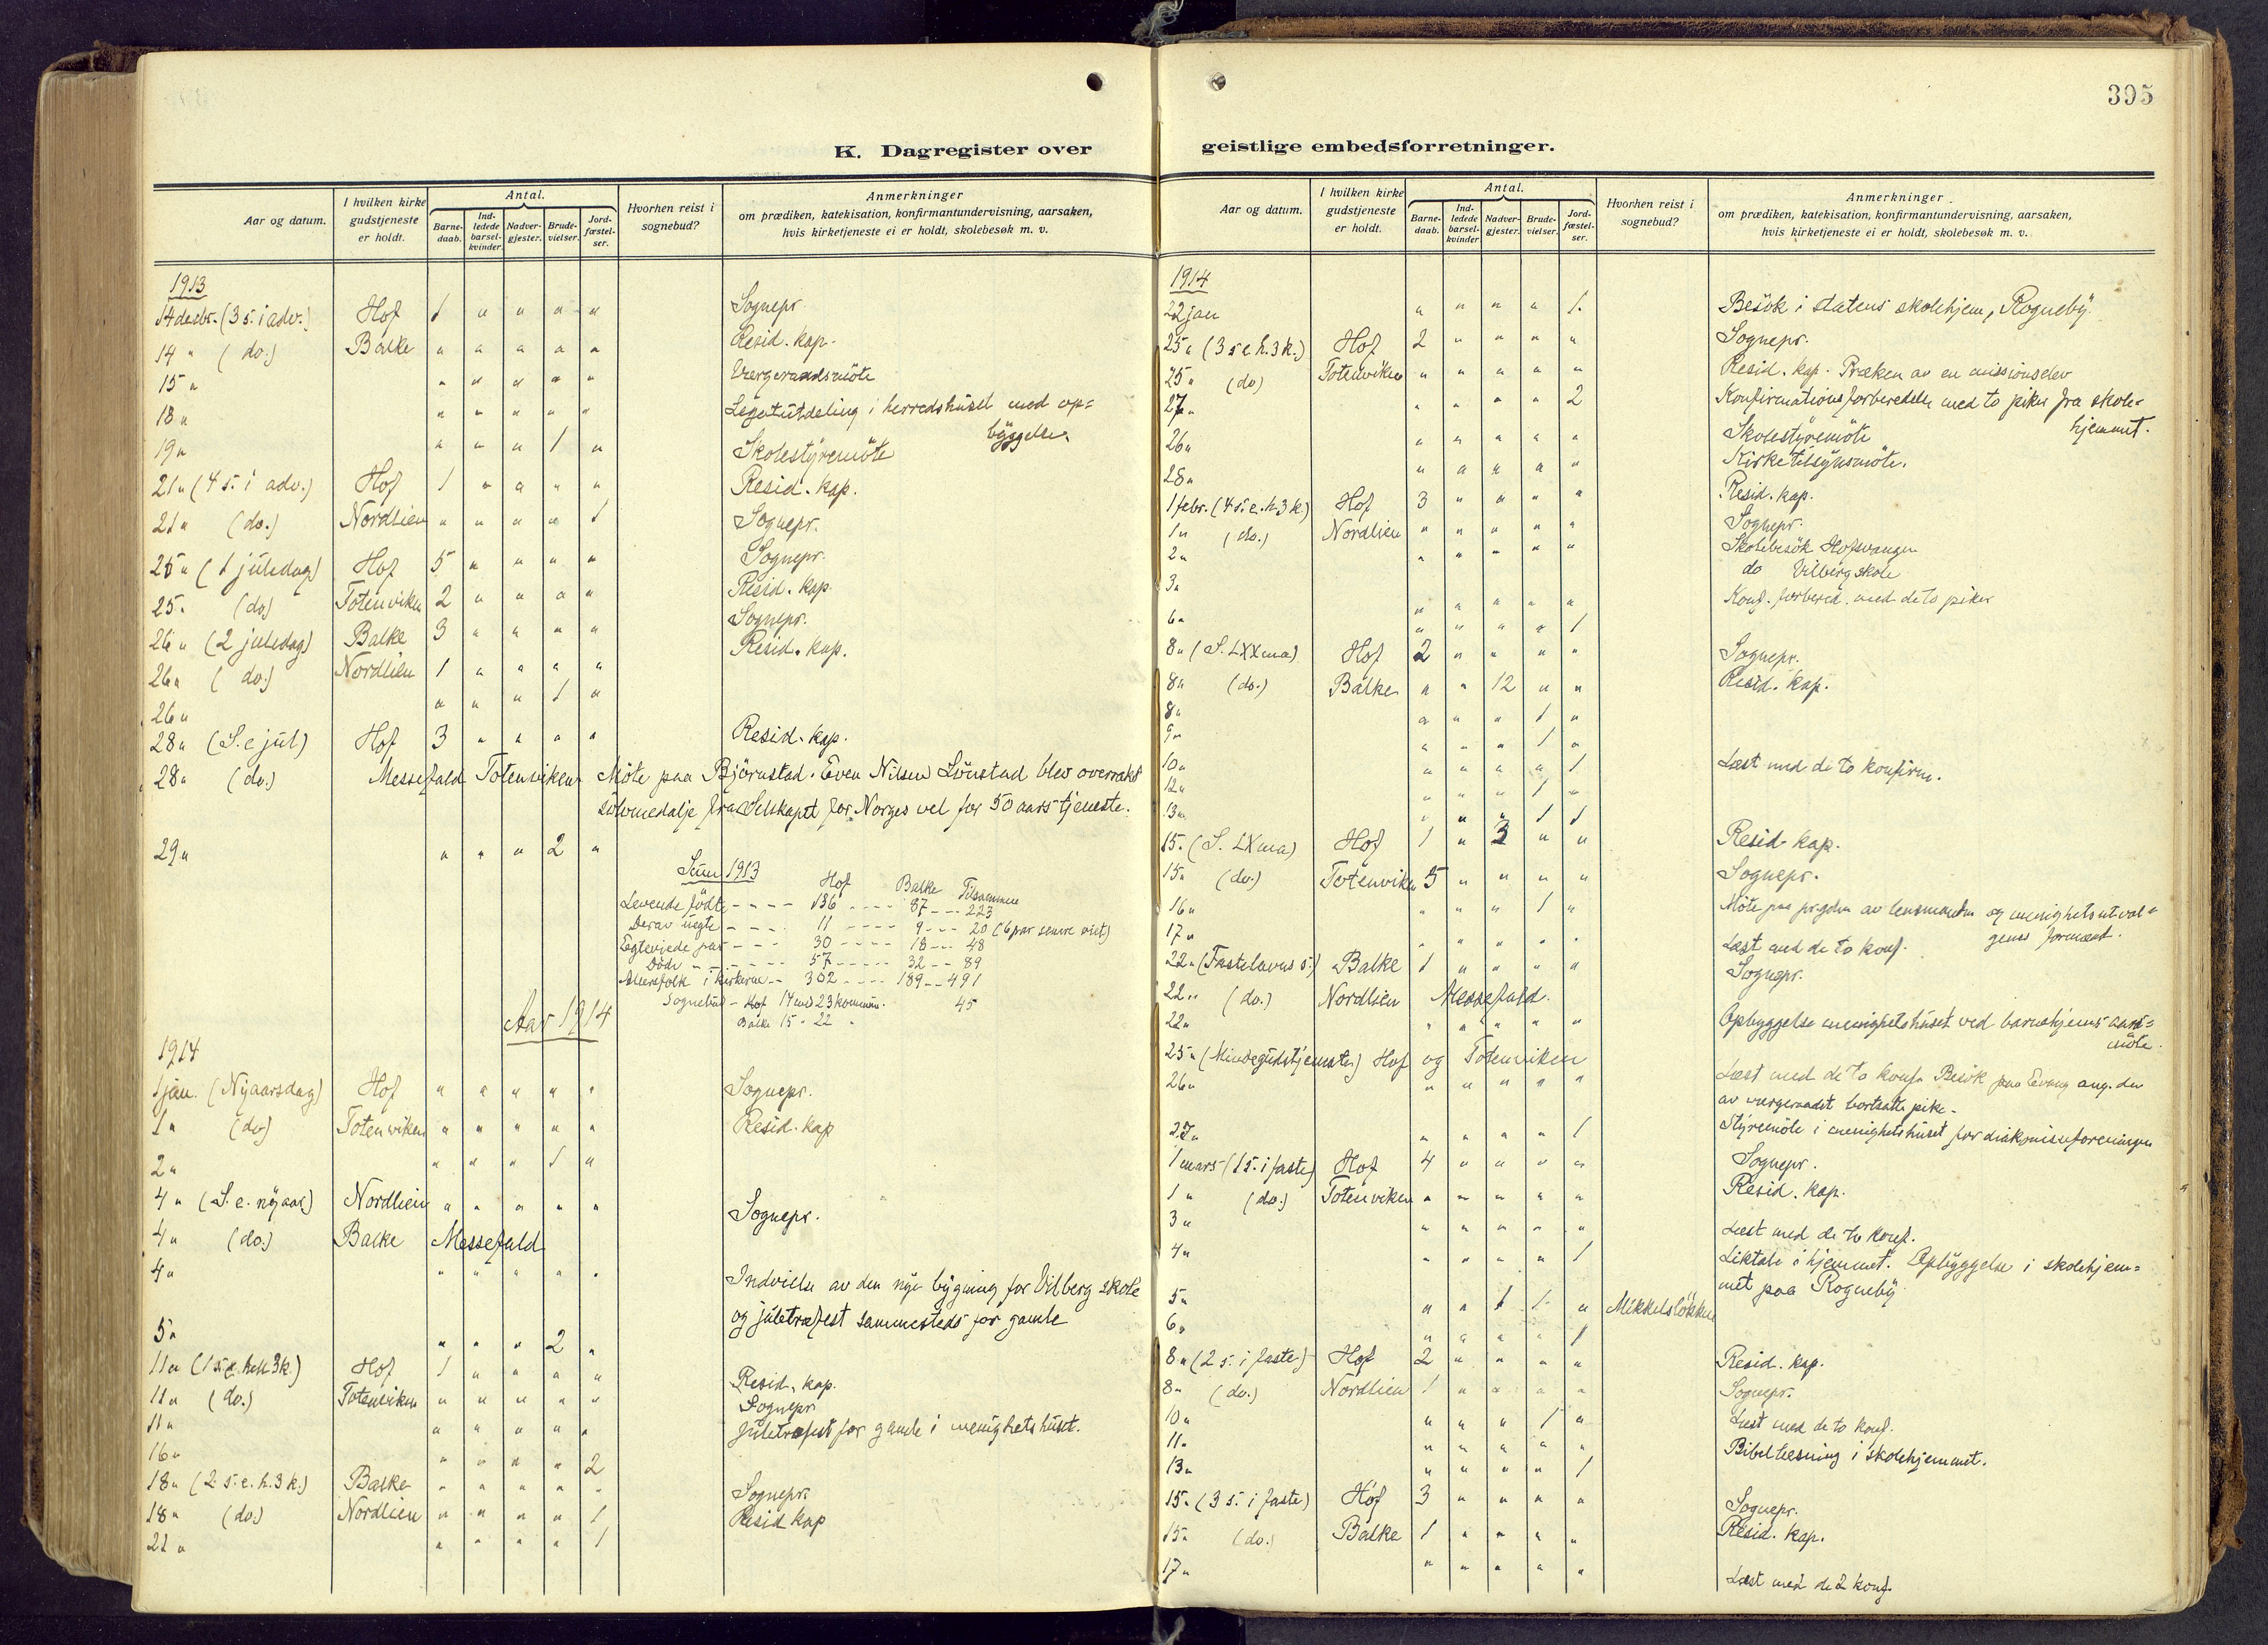 395
K. Dagregister over geistlige embedsforretninger.
Aar og datum.
I hvilken kirke gudstjeneste er holdt.
Antal.
Barne-daab.
Ind-ledede barsel-kvinder.
Nadver-gjester.
Brude-vielser.
Jord-fæstel-ser.
Hvorhen reist i sognebud?
Anmerkninger
om prædiken, katekisation, konfirmantundervisning, aarsaken,
hvis kirketjeneste ei er holdt, skolebesøk m. v.
1913
14 decbr. (3 s. i adv.) Hof 1 " " " " Sognepr.
14 " (do.) Balke " " " " " Resid. kap.
15 " " " " " " Vergeraadsmöte
18 " " " " " " Legatutdeling i herredshuset med op=
byggelse.
19 " " " " 1 " Skolestyremöte
21 " (4 s. i adv.) Hof 1 " " " " Resid. kap.
21 " (do.) Nordlien " " " " 1 Sognepr.
25 " (1 juledag) Hof 5 " " " " Sognepr.
25 " (do) Totenviken 2 " " " " Resid. kap.
26 " (2 juledag) Balke 3 " " " " Sognepr.
26 " (do.) Nordlien 1 " " " " Resid. kap.
26 " " " " 1 "
28 " (S. e jul) Hof 3 " " " " Resid. kap.
28 " (do.) Messefald Totenviken Möte paa Björnstad. Even Nilsen Lönstad blev overrakt
sölvmedalje fra Selskapet for Norges vel for 50 aars tjeneste.
29 " " " " 2 "
Sum 1913
Hof Balke Tilsammen
Levende födte - - - - 136 - - - - 87 - - - 223
Derav uegte - - - - 11 - - - - 9 - - - 20 (6 par senere viet)
Egteviede par - - - 30 - - - - 18 - - - 48
Döde - - - - - - 57 - - - - 32 - - - 89
Altersfolk i kirkerne - - 302 - - - - 189 - - 491
Sognebud - Hof 14 med 23 kommun. 45
Balke 15 " 22 "
Aar 1914
1914
1 jan. (Nyaarsdag) Hof " " " " " Sognepr.
1 " (do) Totenviken " " " " " Resid. kap
2 " " " " 1 "
4 " (S. e. nyaar) Nordlien " " " " " Sognepr.
4 " (do.) Balke Messefald
4 " " " " " " Indvielse av den nye bygning for Vilberg skole
og juletræfest sammesteds for gamle
5 " " " " 2 "
11 " (1 s. e. hell 3 k.) Hof 1 " " " " Resid. kap.
11 " (do.) Totenviken " " " " " Sognepr
11 " " " " " " Juletræfest for gamle i menighetshuset.
16 " " " " " 2
18 " (2 s. e. h. 3 k.) Balke " " " " " Sognepr.
18 " (do.) Nordlien " " " " 1 Resid kap
21 " " " " " 1
Aar og datum.
I hvilken kirke gudstjeneste er holdt.
Antal.
Barne-daab.
Ind-ledede barsel-kvinder.
Nadver-gjester.
Brude-vielser.
Jord-fæstel-ser.
Hvorhen reist i sognebud?
Anmerkninger
om prædiken, katekisation, konfirmantundervisning, aarsaken,
hvis kirketjeneste ei er holdt, skolebesøk m. v.
1914
22 jan " " " " 1. Besök i statens skolehjem, Rogneby.
25 " (3 s e h. 3 k.) Hof 2 " " " " Sognepr.
25 " (do) Totenviken " " " " " Resid. kap. Præken av en missionselev
27 " " " " " 2 Konfirmationsforberedelse med to piker fra skole=
hjemmet.
26 " " " " " " Skolestyremöte
28 " " " " " " Kirketilsynsmöte.
1 febr. (4 s. e. h. 3 k) Hof 3 " " " " Resid. kap.
1 " (do.) Nordlien " " " " " Sognepr.
2 " " " " " " Skolebesök Hofsvangen
do Vilberg skole
3 " " " " " " Konf. forbered. med de to piker
6 " " " " " 1
8 " (S. LXXma) Hof 2 " " " " Sognepr.
8 " (do.) Balke " " 12 " " Resid. kap.
8 " " " " 1 "
9 " " " " 1 "
10 " " " " " 1 Læst med de to konfirm.
12 " " " " 1 "
13 " " " " 1 1
15 " (S. LXma) Hof 1 " 3 " " Resid. kap.
15 " (do.) Totenviken 5 " " " " Sognepr.
16 " " " " 1 " Möte paa prgden av lensmanden og menighetsutval=
genes formænd.
17 " " " " " " Læst med de to konf.
22 " (Fastelavns s.) Balke 1 " " " " Sognepr.
22 " (do.) Nordlien Messefald.
22 " " " " " " Opbyggelse menighetshuset ved barnehjems aars=
möte.
25 " (Mindegudstjenester) Hof og Totenviken
26 " " " " " " Læst med de to konf. Besök paa Evang ang. den
av vergeraadet bortsatte pike.
27 " " " " " 1 Styremöte i menighetshuset for diakonisseforeningen
1 mars (1 s. i faste) Hof 4 " " " " Sognepr.
1 " (do.) Totenviken " " " " " Resid. kap.
3 " " " " " " Læst med de to konf.
4 " " " " " 1 Liktale i hjemmet. Opbyggelse i skolehjem=
met paa Rogneby
5 " " " 1 1 " Mikkelslökken
6 " " " " " 1
8 " (2 s. i faste) Hof 2 " " " " Resid. kap.
8 " (do.) Nordlien 1 " " " " Sognepr.
10 " " " " 1 " Læst med de to konf.
11 " " " " " " Bibellæsning i skolehjemmet.
13 " " " " " 1
15 " (3 s. i faste) Hof 3 " " " " Sognepr.
15 " (do.) Balke 1 " " " " Resid. kap.
17 " " " " " " Læst med de 2 konf.